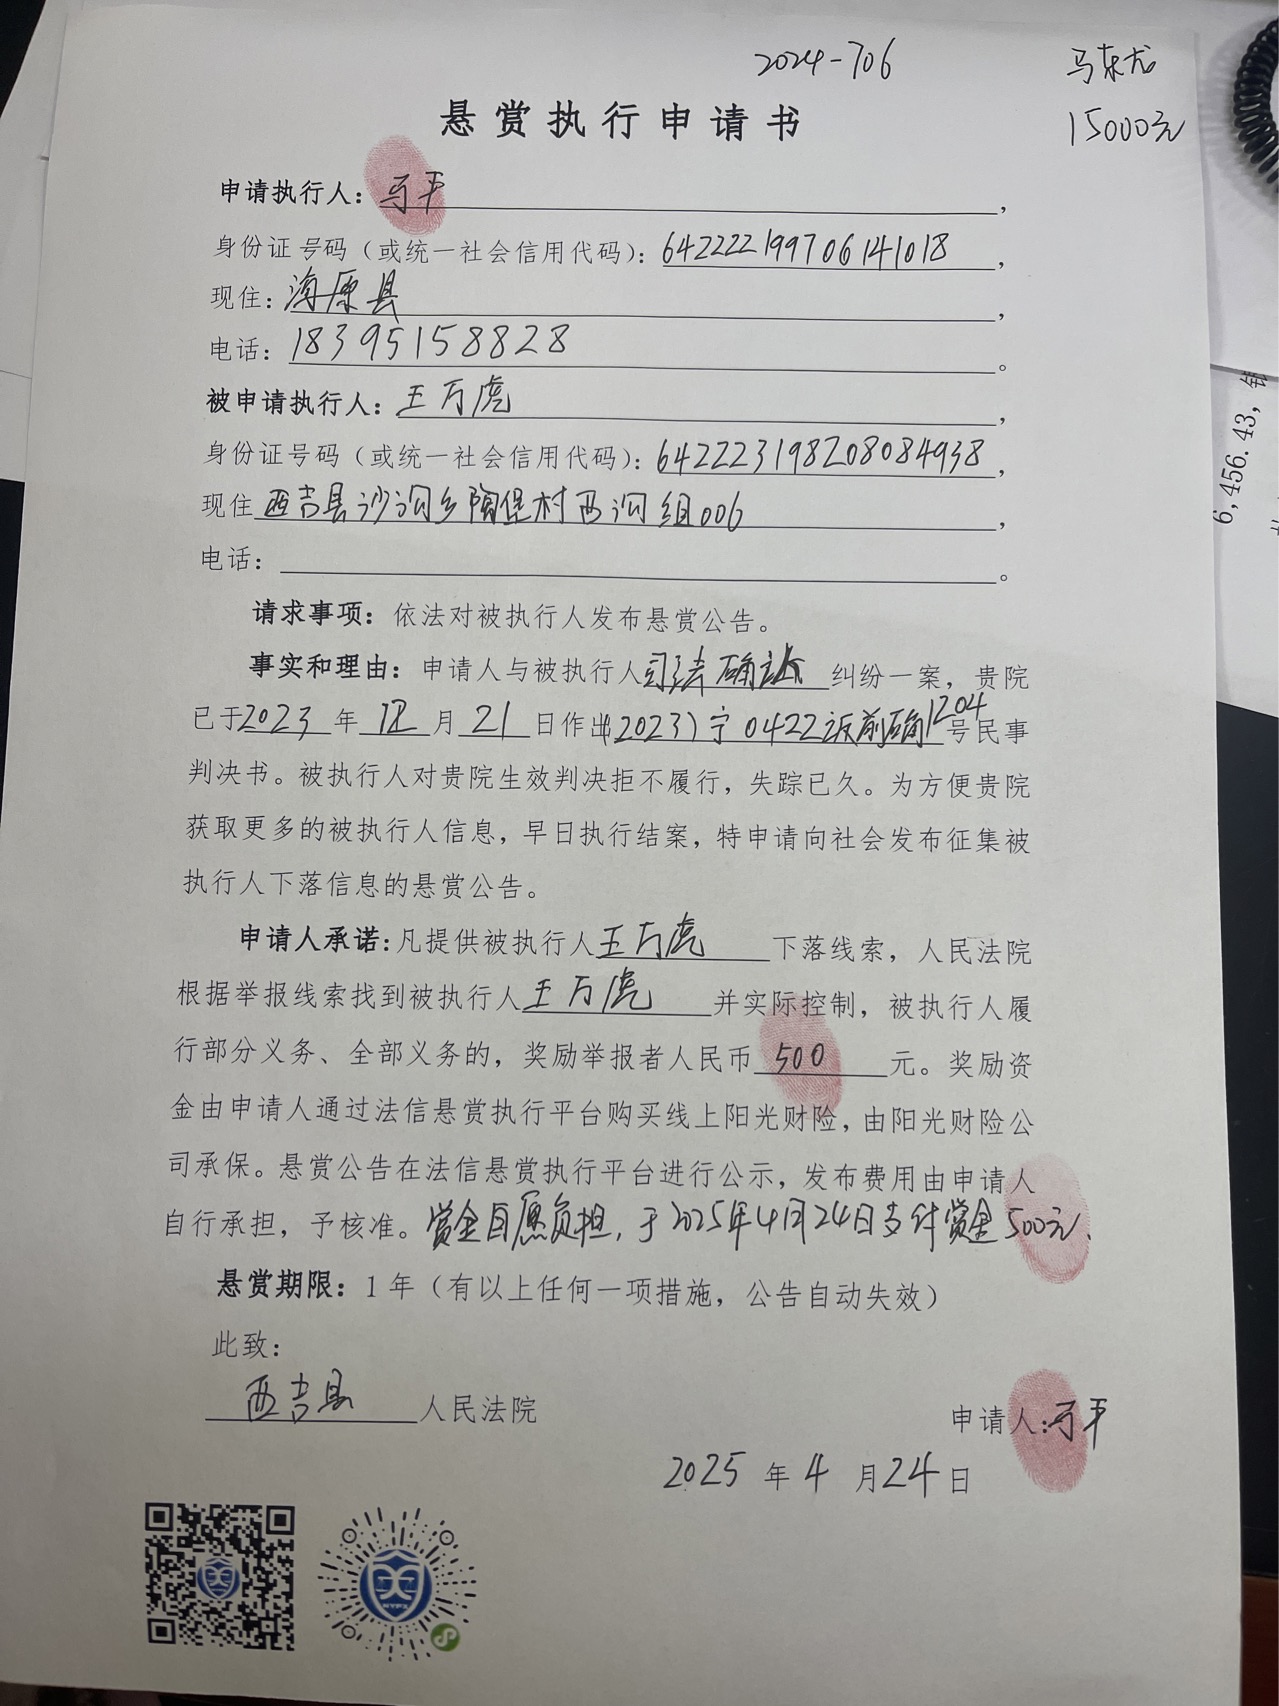 2024-706
马东龙
15000元
悬赏执行申请书
申请执行人：马平，
身份证号码（或统一社会信用代码）：642222199706141018，
现住：海原县，
电话：18395158828。
被申请执行人：王万虎，
身份证号码（或统一社会信用代码）：642223198208084938，
现住西吉县沙沟乡陶堡村西沟组006，
电话：。
请求事项：依法对被执行人发布悬赏公告。
事实和理由：申请人与被执行人司法确认纠纷一案，贵院
已于2023年12月21日作出(2023)宁0422诉前调确1204号民事
判决书。被执行人对贵院生效判决拒不履行，失踪已久。为方便贵院
获取更多的被执行人信息，早日执行结案，特申请向社会发布征集被
执行人下落信息的悬赏公告。
申请人承诺：凡提供被执行人王万虎下落线索，人民法院
根据举报线索找到被执行人王万虎并实际控制，被执行人履
行部分义务、全部义务的，奖励举报者人民币500元。奖励资
金由申请人通过法信悬赏执行平台购买线上阳光财险，由阳光财险公
司承保。悬赏公告在法信悬赏执行平台进行公示，发布费用由申请人
自行承担，予核准。赏金自愿负担，于2025年4月24日支付赏金500元。
悬赏期限：1年（有以上任何一项措施，公告自动失效）
此致：
西吉县人民法院
申请人：马平
2025年4月24日
6,456.43，